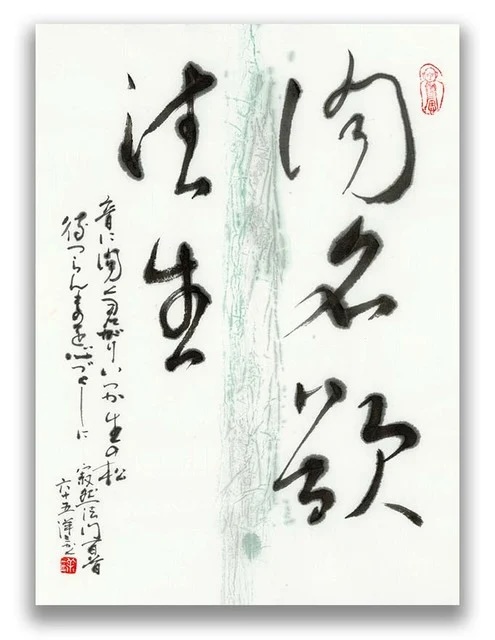 聞名欲
往生
音に聞く君がりいつか生の松
待つらんものを心づくしに
寂然法門百首
六十五